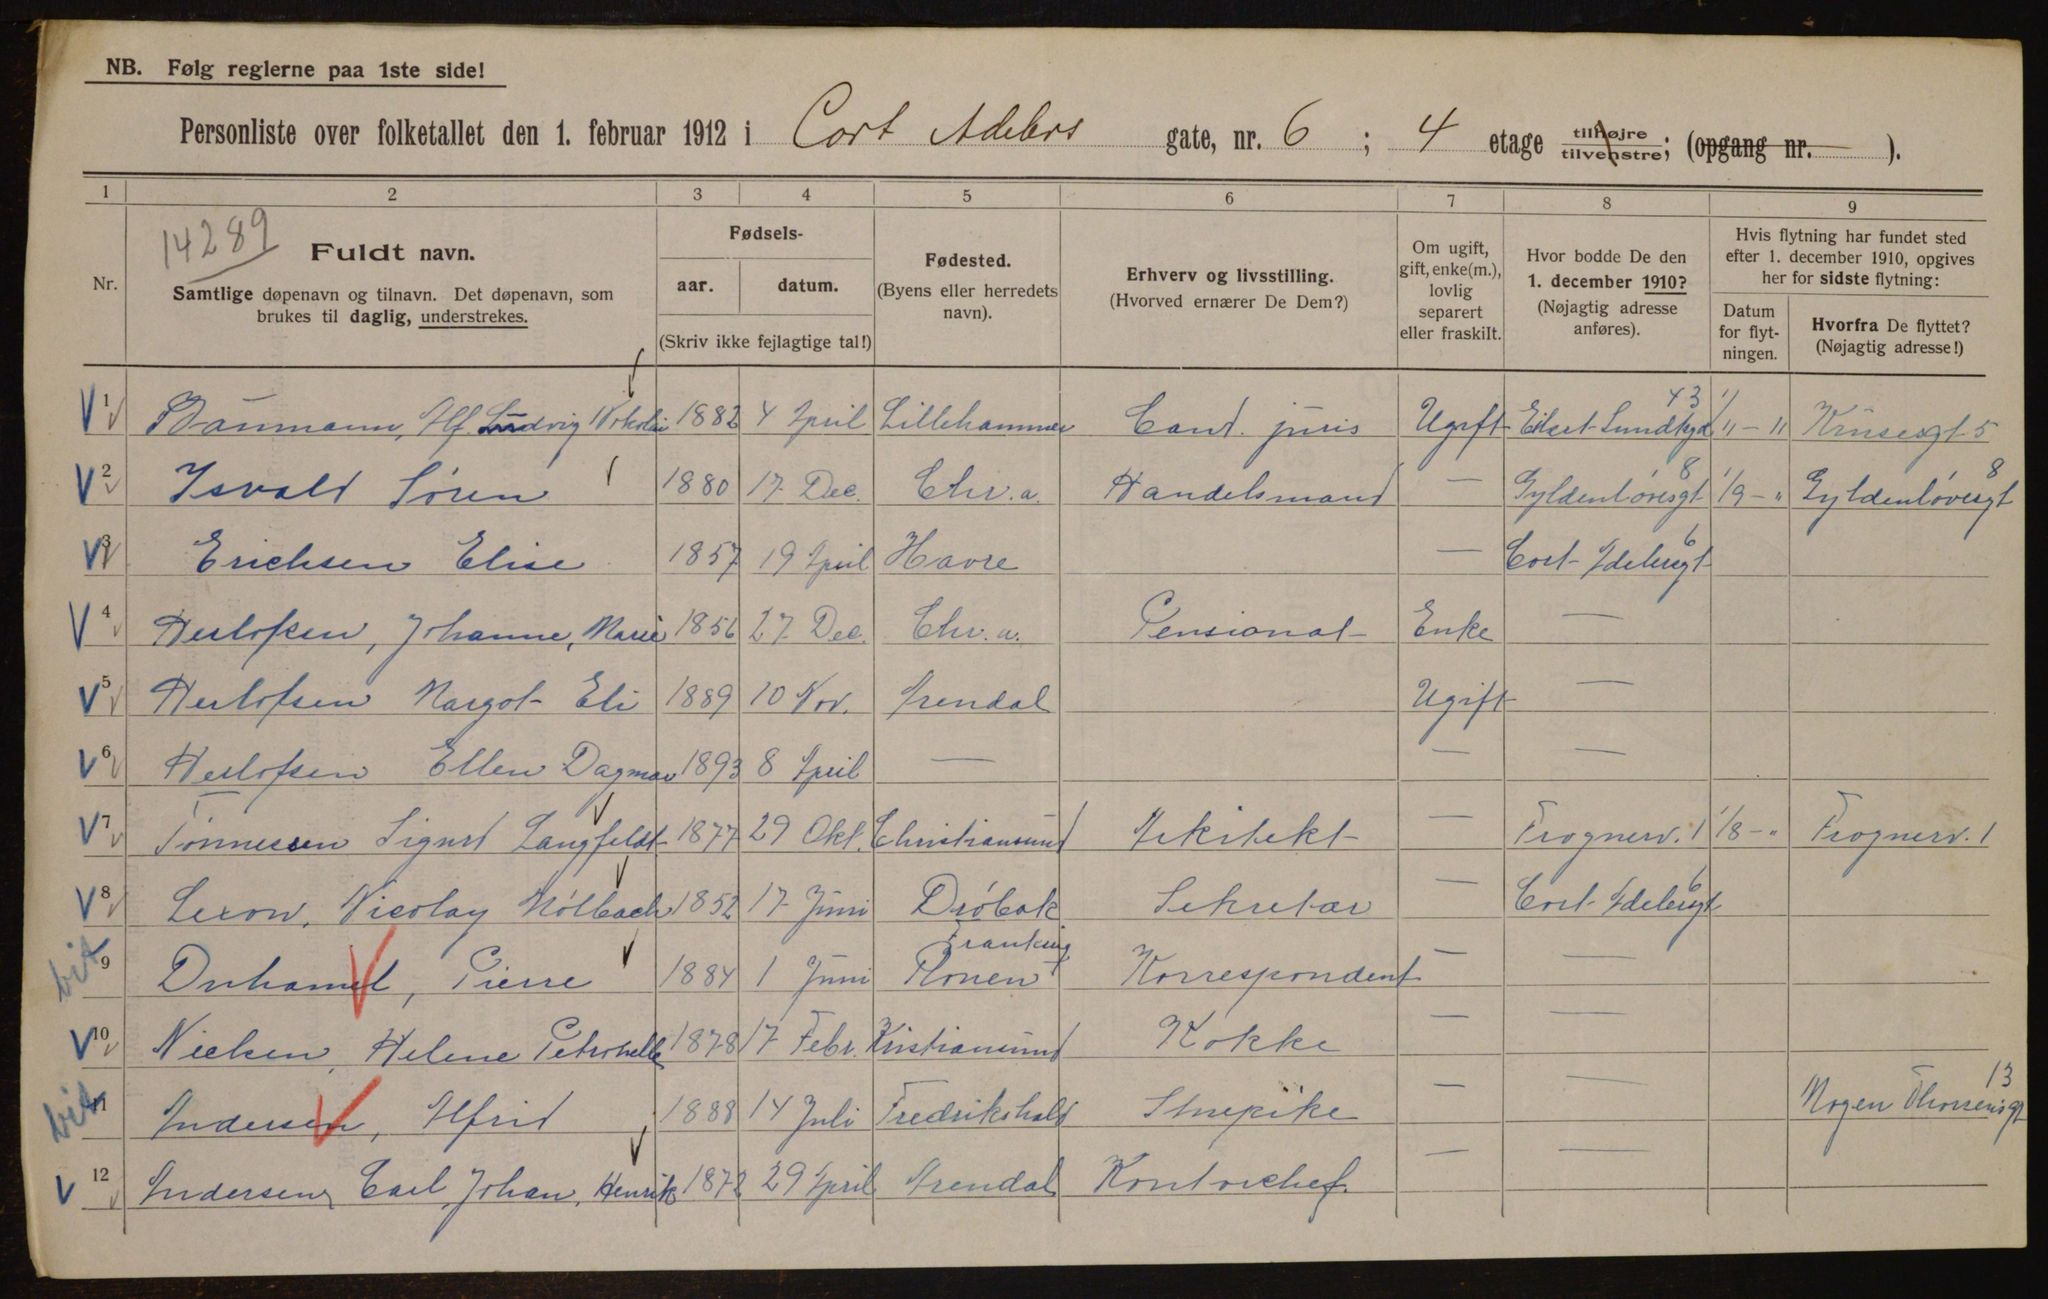 NB. Følg reglerne paa 1ste side!
Personliste over folketallet den 1. februar 1912 i Cort Adelers gate, nr. 6 ; 4 etage tilhøjre tilvenstre; (opgang nr. ).
1 2 3 4 5 6 7 8 9
14289
Nr.
Fuldt navn.
Samtlige døpenavn og tilnavn. Det døpenavn, som
brukes til daglig, understrekes.
Fødsels-
aar. datum.
(Skriv ikke fejlagtige tal!)
Fødested.
(Byens eller herredets
navn).
Erhverv og livsstilling.
(Hvorved ernærer De Dem?)
Om ugift,
gift, enke(m.),
lovlig
separert
eller fraskilt.
Hvor bodde De den
1. december 1910?
(Nøjagtig adresse
anføres).
Hvis flytning har fundet sted
efter 1. december 1910, opgives
her for sidste flytning:
Datum
for flyt-
ningen.
Hvorfra De flyttet?
(Nøjagtig adresse!)
1 Baumann, Alf Ludvig Nikolai 1882 4 April Lillehammer Cand. juris Ugift Eilert Sundtgd 43
2 Isvald Søren 1880 17 Dec. Chr.a. Handelsmand — Gyldenløvesgt 8 1/9 - " Gyldenløvesgt 8
3 Erichsen Elise 1857 19 April Havre — Cort Adelersgt 6
4 Herlofsen, Johanne, Marie 1856 27 Dec. Chr.a. Pensionat Enke —
5 Herlofsen Margot Eli 1889 10 Nov. Arendal Ugift —
6 Herlofsen Ellen Dagmar 1893 8 April — — —
7 Tönnessen Sigurd Langfeldt 1877 29 Okt. Christiansund Arkitekt — Frognerv. 1 1/8 - " Frognerv. 1
8 Lexow, Nicolay Mölbach 1852 17 Juni Dröbak Sekretær — Cort Adelersgt 6
9 Duhamel, Pierre 1884 1 Juni Rouen Frankrig Korrespondent — —
10 Nielsen, Helene Petronelle 1878 17 Febr. Kristiansund Kokke — —
11 Andersen, Alfrid 1888 14 Juli Fredrikshald Stuepike — — Mogen Thorsensgt 13
12 Andersen, Carl Johan, Henrik 1872 29 April Arendal Kontorchef. — —